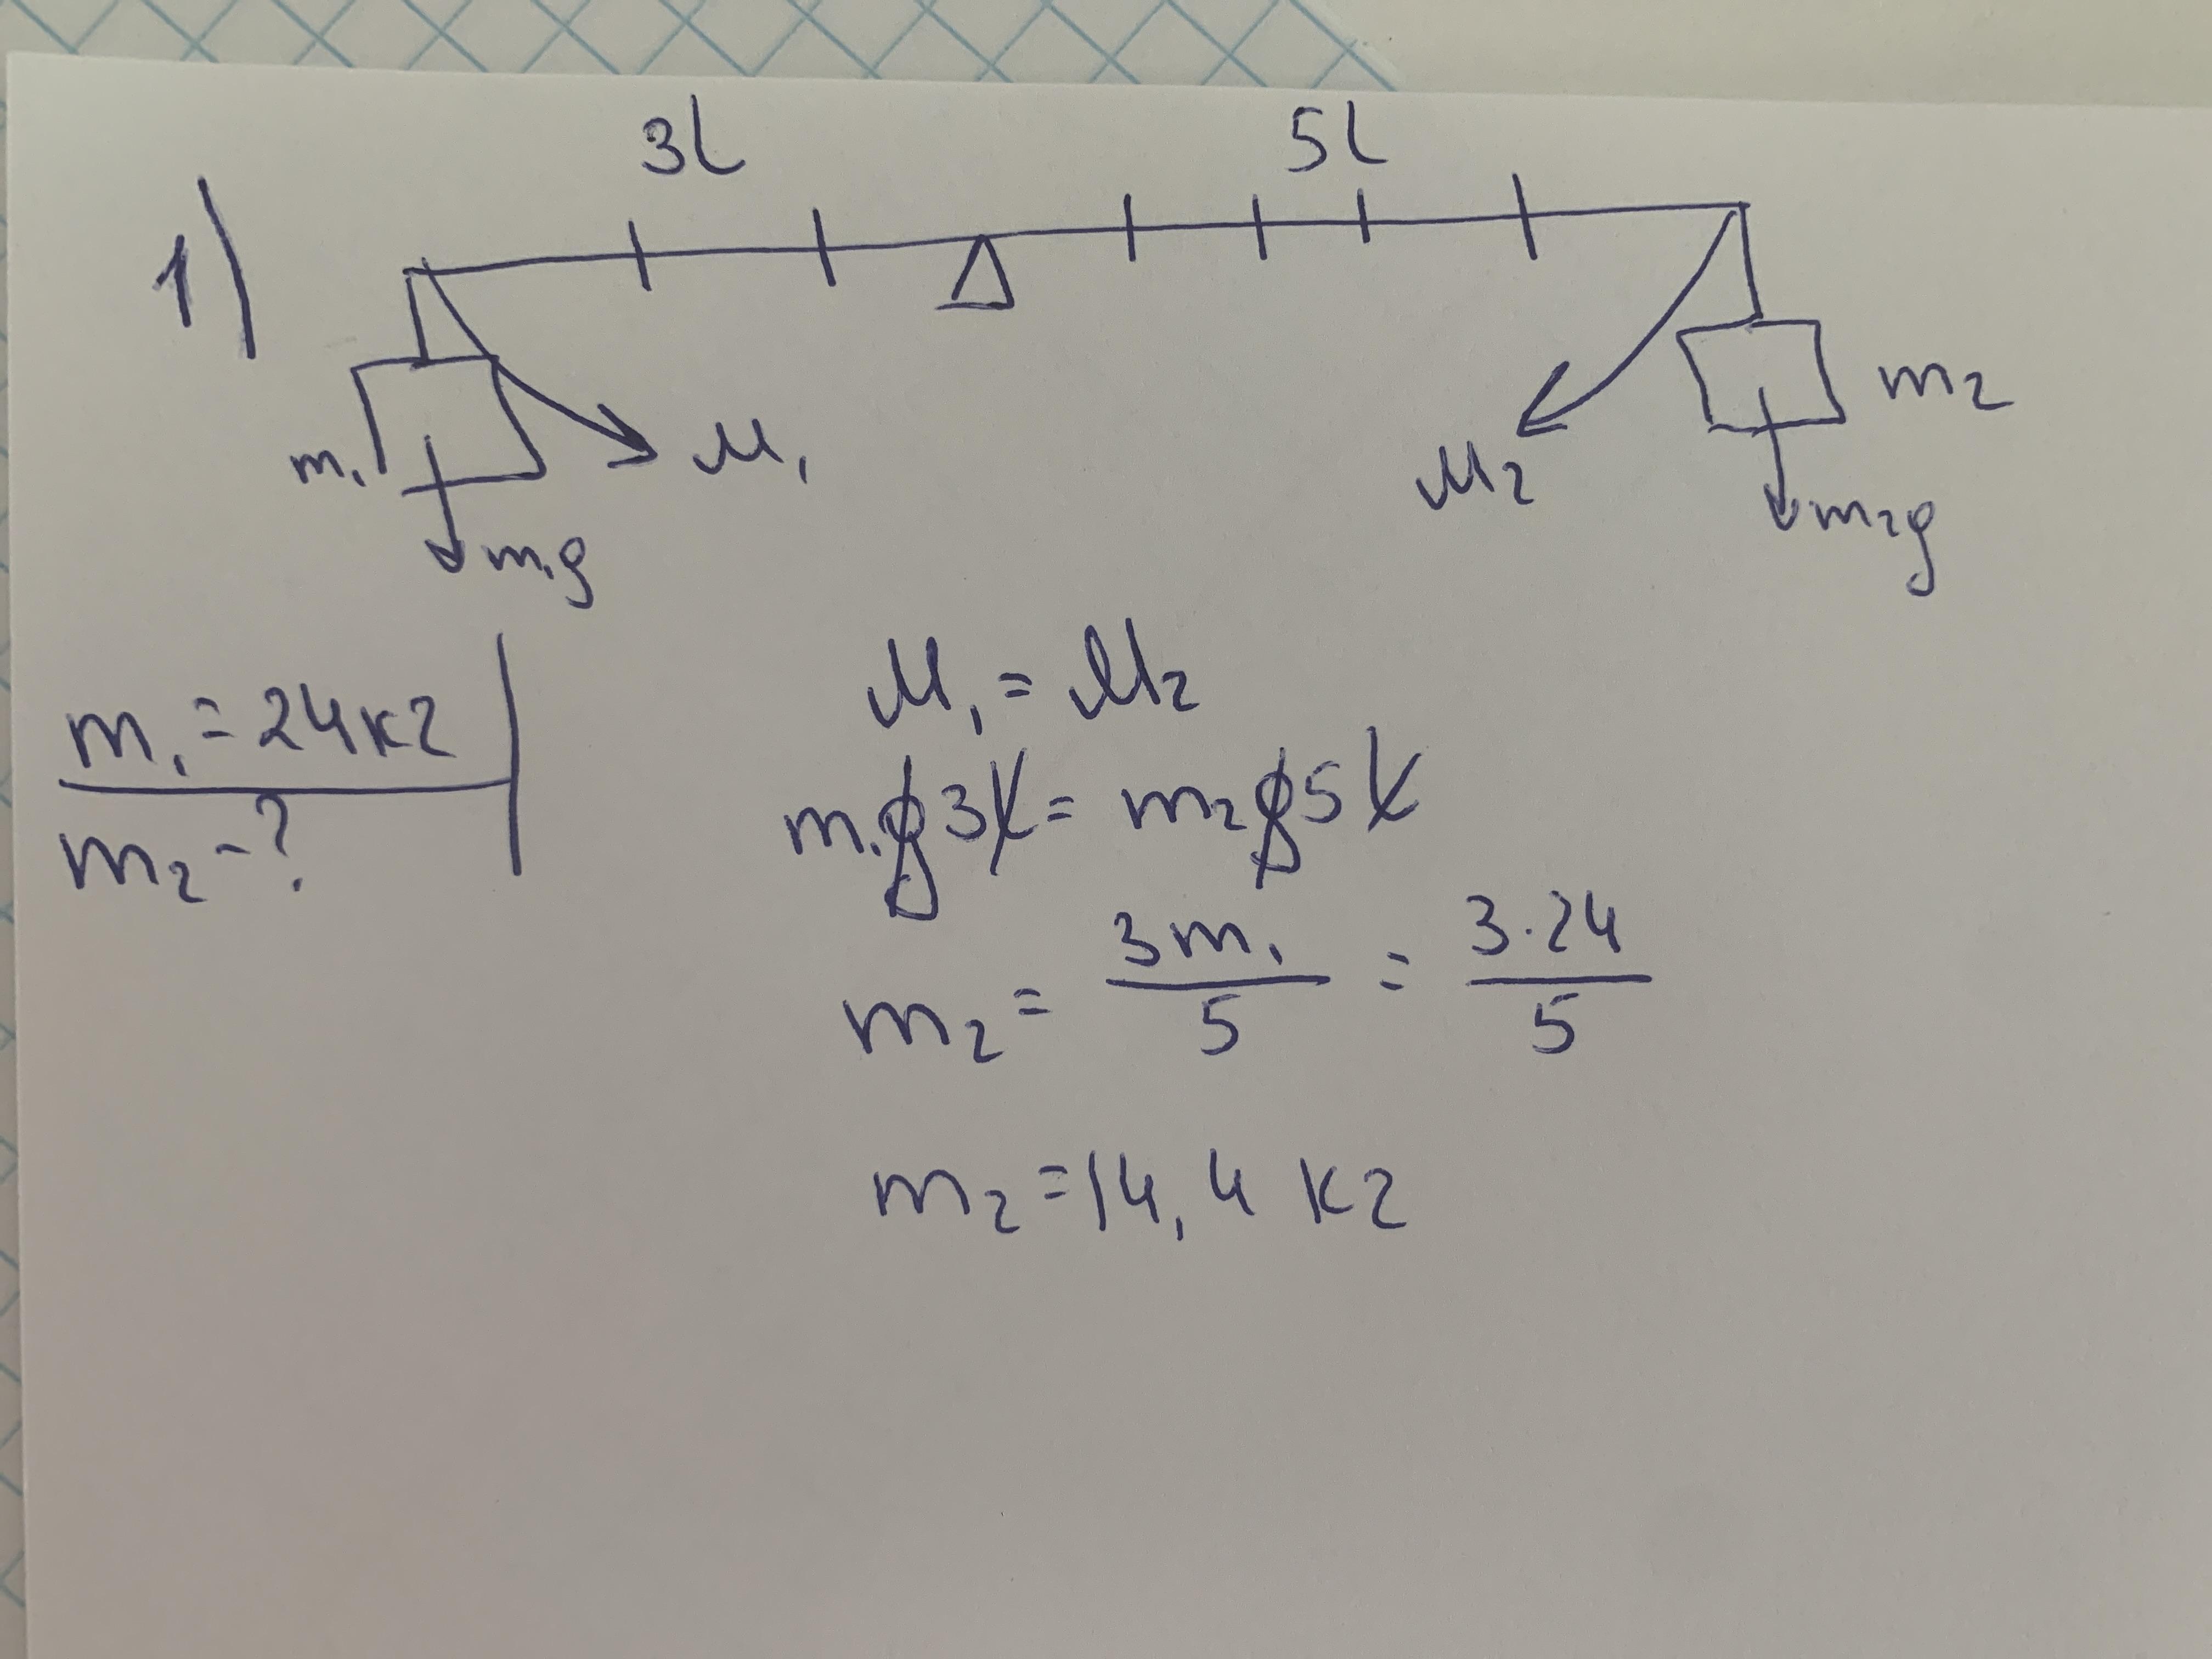 1)
3l 5l
m₁ M₁ M₂ m₂
m₁g m₂g
m₁ = 24 кг
m₂ - ?
M₁ = M₂
m₁g3l = m₂g5l
m₂ = 3m₁/5 = 3·24/5
m₂ = 14,4 кг